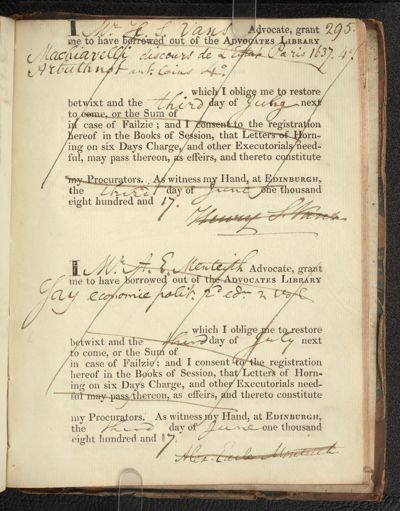 I Mr H. S. Vans Advocate, grant 295.
me to have borrowed out of the ADVOCATES LIBRARY
Machiavelli discours de Paris 1637. 4o
Arbuthnot ant. Coins 4o.
which I oblige me to restore
betwixt and the third day of next
to come, or the Sum of
in case of Failzie ; and I consent to the registration
hereof in the Books of Session, that Letters of Horn-
ing on six Days Charge, and other Executorials need-
ful, may pass thereon, as effeirs, and thereto constitute
my Procurators. As witness my Hand, at EDINBURGH,
the third day of June one thousand
eight hundred and 17.
Henry S Vans
I Mr A. E. Monteith Advocate, grant
me to have borrowed out of the ADVOCATES LIBRARY
Say economie polit. 2 vols
which I oblige me to restore
betwixt and the third day of July next
to come, or the Sum of
in case of Failzie ; and I consent to the registration
hereof in the Books of Session, that Letters of Horn-
ing on six Days Charge, and other Executorials need-
ful may pass thereon, as effeirs, and thereto constitute
my Procurators. As witness my Hand, at EDINBURGH,
the third day of June one thousand
eight hundred and 17.
Alex. Earle Monteith